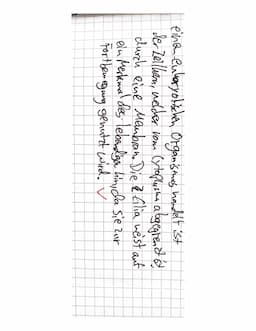 eine eukaryotischen Organismus handelt ist
der Zellkern, welcher vom Cytoplasma abgegrenzt ist
durch eine Membran. Die Cilia weist auf
ein Merkmal des Lebendigen hin, da sie zur
Fortbewegung genutzt wird. ✓